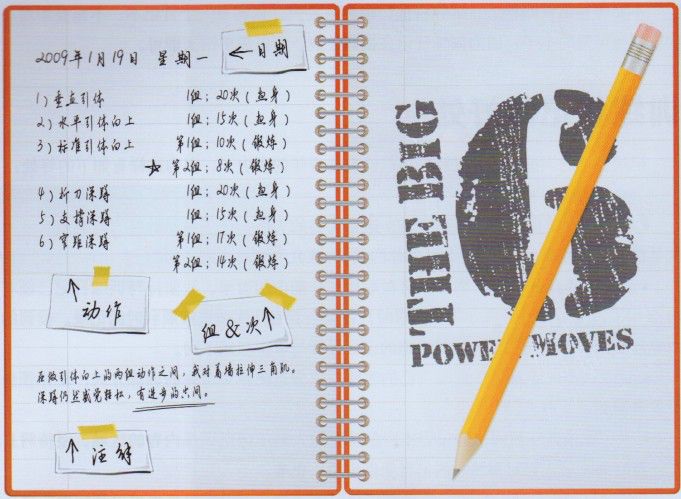 2009年1月19日 星期一
←日期
1)垂直引体 1组；20次(热身)
2)水平引体向上 1组；15次(热身)
3)标准引体向上 第1组；10次(锻炼)
☆ 第2组；8次(锻炼)
4)折刀深蹲 1组；20次(热身)
5)支撑深蹲 1组；15次(热身)
6)窄距深蹲 第1组；17次(锻炼)
第2组；14次(锻炼)
↑动作
组&次↑
在做引体向上的两组动作之间，我对着墙拉伸三角肌。
深蹲仍然感觉轻松，有进步的空间。
↑注解
THE BIG
6
POWER MOVES